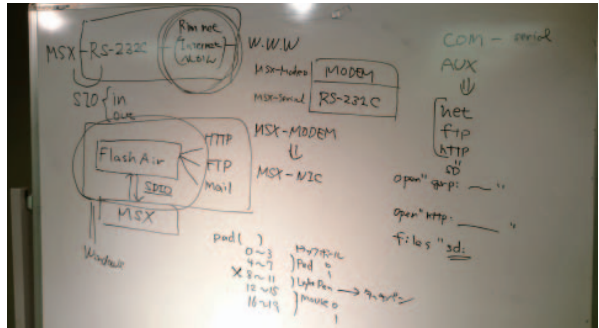 MSX - RS-232C
Rim net
Internet
W.W.W
SIO { in
out
MSX-Modem MODEM
MSX-Serial RS-232C
MSX-MODEM
⇓
MSX-NIC
FlashAir
HTTP
FTP
Mail
SDIO
MSX
Windows
COM - serial
AUX
⇓
net
ftp
http
SD
open" 〜 "
open"http: "
files "sd:
pad( )
0〜3
4〜7 ) Pad 0
1
× 8〜11 ) LightPen → タッチペン
12〜15 ) mouse 0
16〜19 1